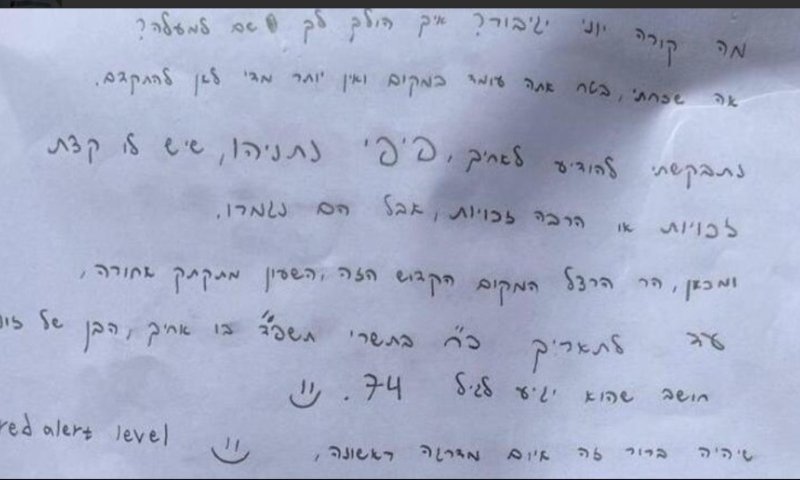 מה קורה יוני יגיבור? איך הולך לך שם למעלה?
אה שכחתי, בטח אתה עומד במקום ואין יותר מדי לאן להתקדם.
נתבקשתי להודיע לאחיך, פיפי נתניהו, שיש לו קצת
זכויות או הרבה זכויות, אבל הם נגמרו.
ומכאן, הר הרצל המקום הקדוש הזה, השעון מתקתק אחורה,
עד לתאריך כ"ח בתשרי תשפ"ד בו אחיך, הבן של
חושב שהוא יגיע לגיל 74.
שיהיה ברור זה איום מדרגה ראשונה,
red alert level